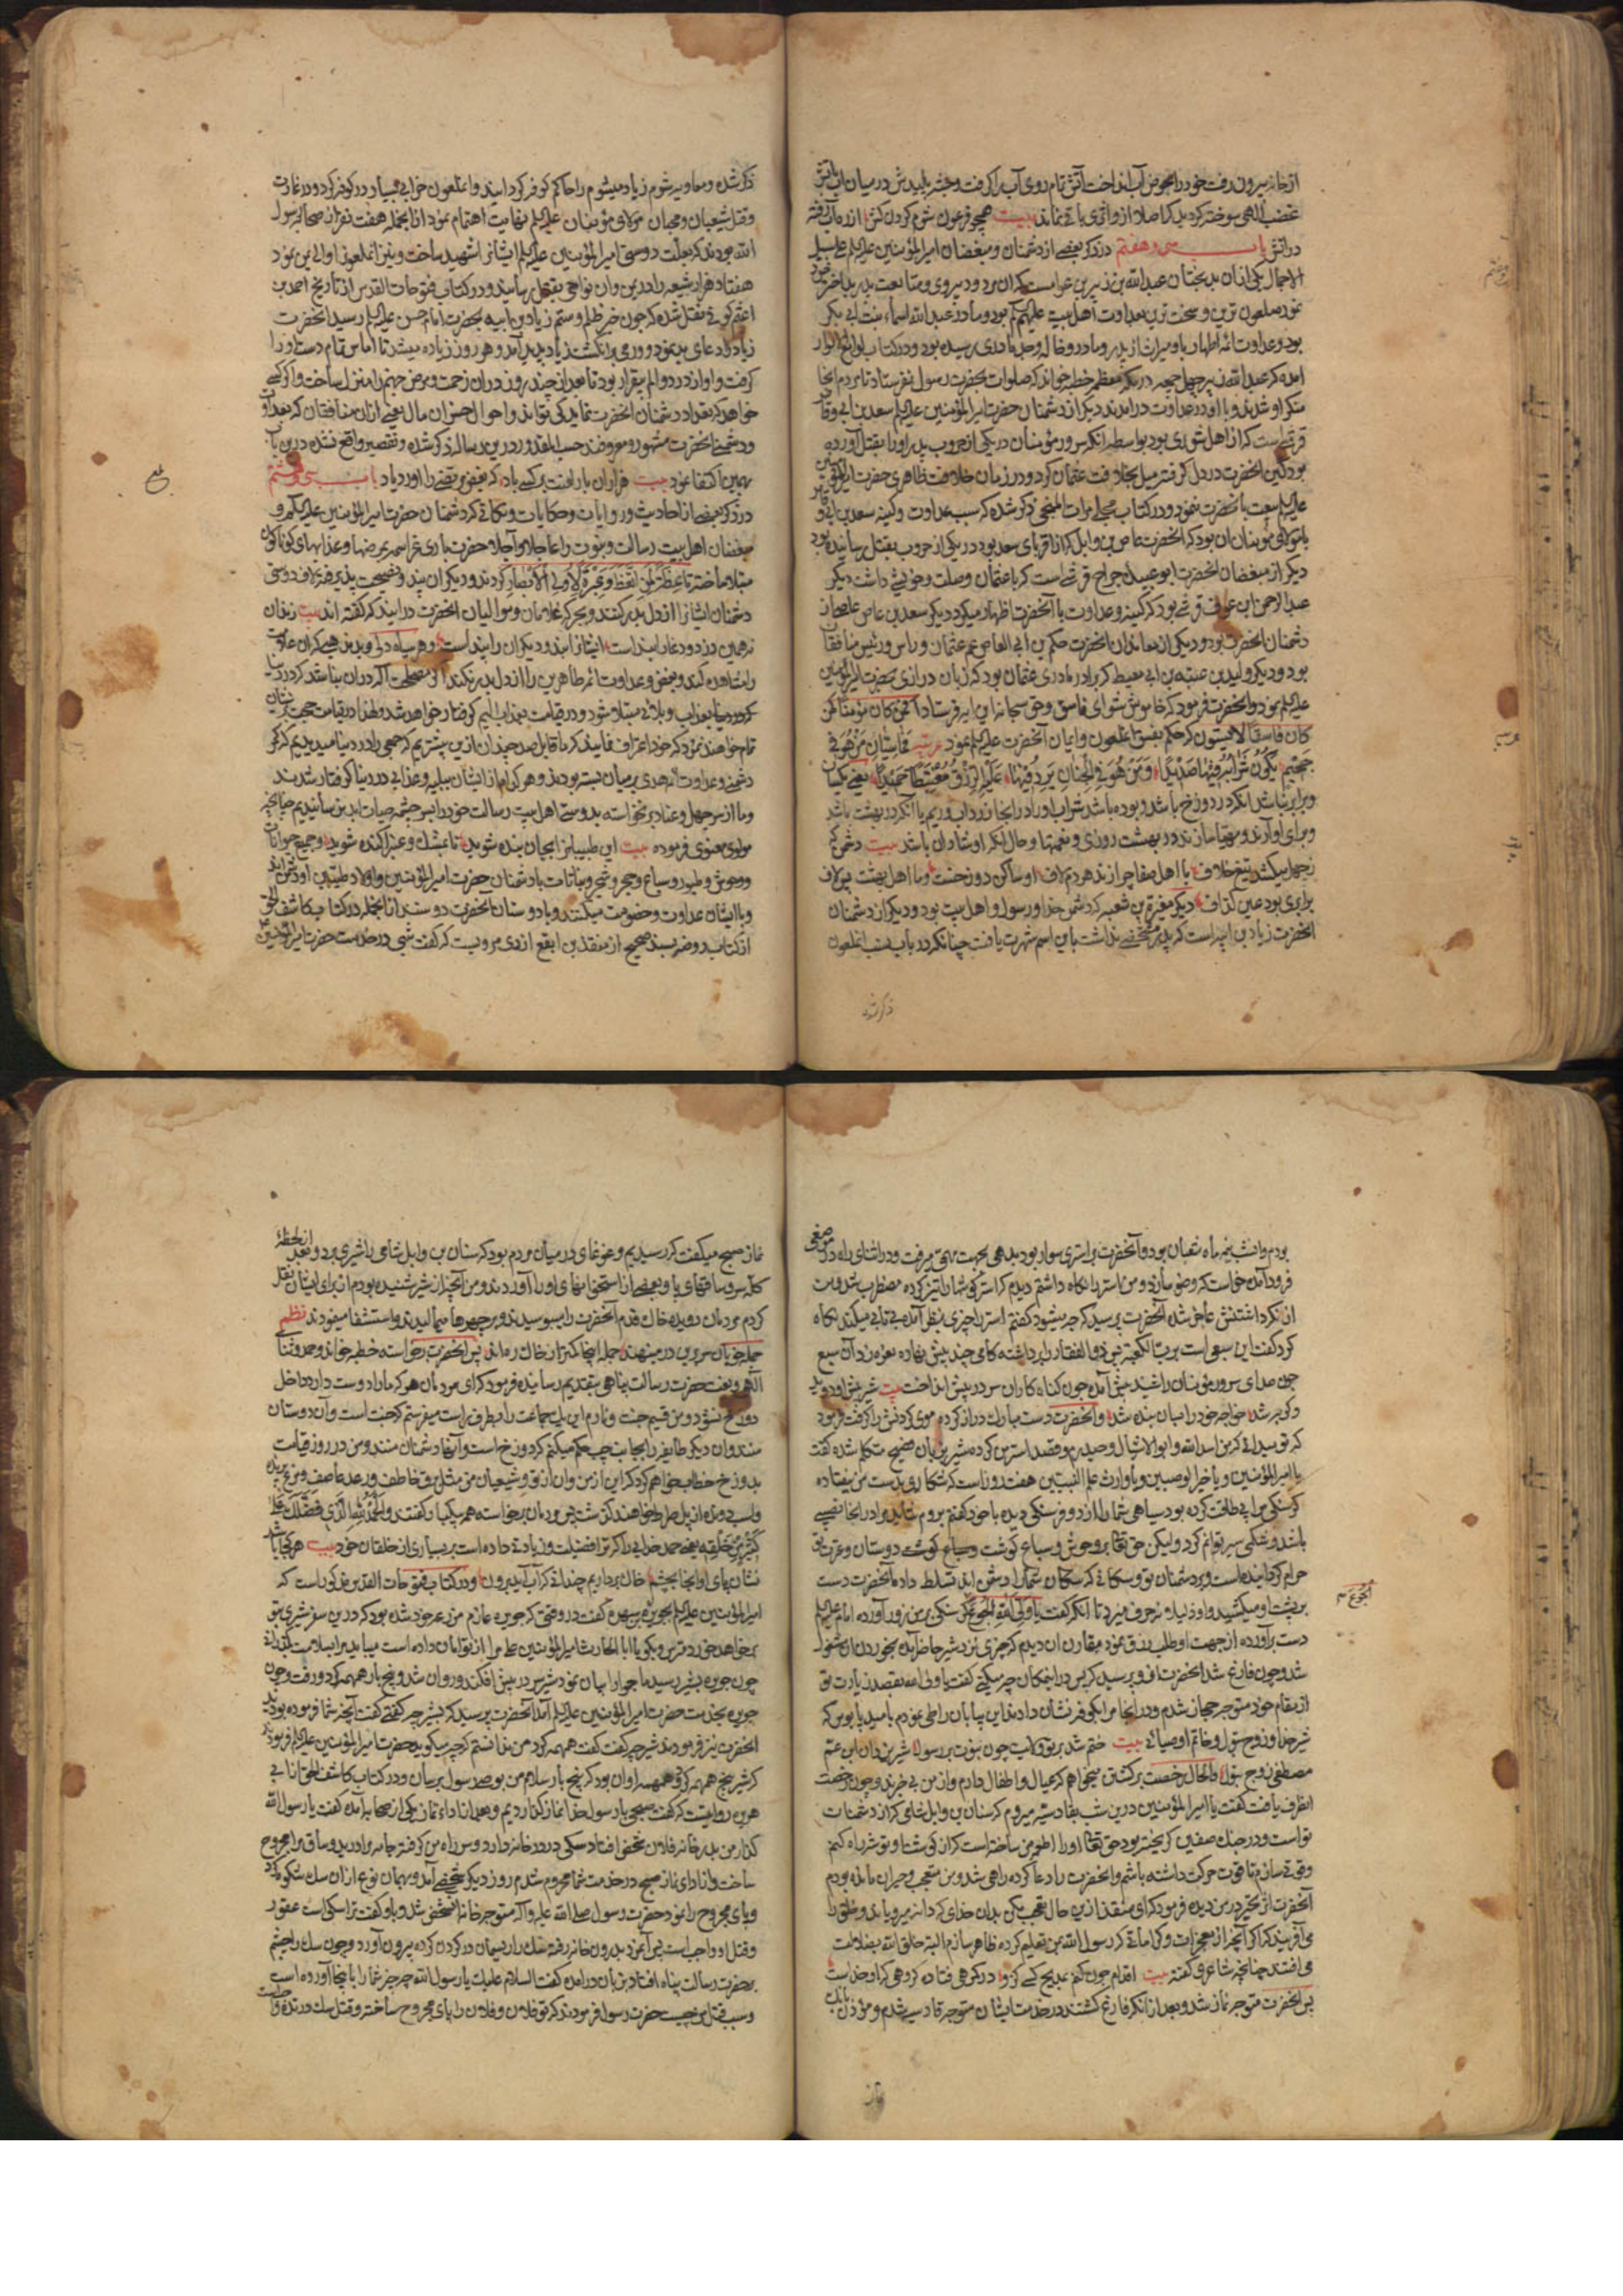 از خانه بیرون رفت خود را بحوض آب انداخت آتش تمام روی آب را گرفت و جثه پلیدش در میان آب بآتش
غضب الهی سوخته گردید که اصلا از او اثری باقی نماند بیت همچو فرعون شوم گردن کش از ره آب رفته
در آتش باب سی و هفتم در ذکر بعضی از دشمنان و مبغضان امیرالمؤمنین علیه السلام علی سبیل
الاجمال یکی از ان بدبختان عبدالله بن زبیر بن عوام است که ان مردود پیروی و متابعت پدر بد اختر خود
نموده ملعون ترین و سخت ترین بعداوت اهل بیت علیهم السلام بود و مادر عبدالله اسماء بنت ابی بکر
بود و عداوت ائمه اطهار باو میراث از پدر و مادر و خاله و جد مادری رسیده بود و در کتاب لوامع الانوار
امده که عبدالله زبیر چهل جمعه در مکه معظمه خطبه خواند که صلوات بحضرت رسول نفرستاد تا مردم انجا
منکر او شدند و با او در عداوت درامدند دیگر از دشمنان حضرت امیرالمؤمنین علیه السلام سعد بن ابی وقاص
قرشی است که از اهل شوری بود بواسطه انکه سرور مؤمنان در یکی از حروب پدر او را بقتل آورده
بود کین انحضرت در دل گرفته میل بخلافت عثمان کرد و در زمان خلافت ظاهری حضرت امیرالمؤمنین
علیه السلام بیعت بانحضرت ننمود و در کتاب مجلی مرات المنجی ذکر شده که سبب عداوت و کینه سعد بن ابی وقاص
با مولای مؤمنان ان بود که انحضرت عاص بن وایل که از اقربای سعد بود در یکی از حروب بقتل رسانیده بود
دیگر از مبغضان انحضرت ابو عبیده جراح قرشی است که با عثمان وصلت و خویشی داشت دیگر
عبدالرحمن ابن عوف قرشی بود که کینه و عداوت با آنحضرت اظهار میکرد دیگر سعد بن عاص علیه
دشمنان انحضرت بود و دیکی از معاندان انحضرت حکم بن ابی العاص عم عثمان و راس و رئیس منافقان
بود و دیگر ولید بن عتبه بن ابی معیط که برادر مادری عثمان بود که زبان درازی بحضرت امیرالمؤمنین
علیه السلام نمود و انحضرت فرمود که خاموش شو ای فاسق و حق سبحانه این ایه فرستاد افمن کان مؤمنا کمن
کان فاسقا لا یستوون که حکم بفسق انملعون و ایمان آنحضرت علیه السلام نمود
یعنی یکسان
و برابر نباشد انکه در دوزخ باشد و بوده باشد شراب او در انجا زرداب و ریم یا آنکه در بهشت باشد
و برای او آرند و مهیا سازند در بهشت روزی و نعمتها و حال انکه او شادان باشد بیت دشمن که
ز جهل میکشد تیغ خلاف با اهل صفا چرا زند هر دم لاف او ساکن دوزخست و ما اهل بهشت پس لاف
برابری بود عین گزاف دیگر مغیرة بن شعبه که دشمن خدا و رسول و اهل بیت بود و دیگر از دشمنان
انحضرت زیاد بن ابیه است که پدر مشخصی نداشت باین اسم شهرت یافت چنانکه در باب نسب انملعون
ذکر شده
ذکر شده و معاویه شوم زیاد میشوم را حاکم کوفه گردانید و انملعون خرابی بسیار در کوفه کرد و در غارت
و قتل شیعیان و محبان مولای مؤمنان علیه السلام نهایت اهتمام نمود از انجمله هفت نفر از صحابه رسول
الله بودند که بعلت دوستی امیرالمؤمنین علیه السلام ایشانرا شهید ساخت و بنیز انملعون اوالی یمن نمود
هفتاد هزار شیعه را در یمن و ان نواحی بقتل رسانید و در کتاب فتوحات القدس از تاریخ احمد بن
اعثم کوفی نقل شده که چون خبر ظلم و ستم زیاد بن ابیه بحضرت امام حسن علیه السلام رسید انحضرت
زیاد را دعای بد نمود و ورمی در انگشت زیاد پدید آمد و هر روز زیاده میشد تا اماس تمام دست او را
گرفت و او از درد و الم بیقرار بود تا بعد از چند روز در ان زحمت و مرض جهنم را منزل ساخت و اگر کسی
خواهد که تعداد دشمنان انحضرت نماید کی تواند و احوال خسران مال بعضی از ان منافقان که بعداوت
و دشمنی انحضرت مشهور و معروفند حسب المقدور درین رساله ذکر شده و تقصیر واقع نشده درین باب
بهمین اکتفا نمود بیت هزاران بار لعنت بر کسی باد که بغض مرتضی را او ز یاد باب سی و هشتم
در ذکر بعضی از احادیث و روایات و حکایات و نکاتی که دشمنان حضرت امیرالمؤمنین علیه السلام و
مبغضان اهل بیت رسالت و نبوت را عاجلا و آجلا حضرت باری عز اسمه بمرضها و عذابهای گوناگون
مبتلا ساخته تا عظة لمن اتعظ و عبرة لاولی الابصار گردند و دیگران پند و نصیحت پذیرفته لاف دوستی
دشمنان ایشانرا از دل بدر کنند و بجرگه غلامان و موالیان انحضرت درایند که گفته اند بیت زندان
نه همین دزد و دغا را بند است ایشانرا بند و دیگران را پند است و هر سیاه دلی و بد مذهبی که ان علامت
را مشاهده کند و بغض و عداوت ائمه طاهرین را از دل بدر نکند اگر مصلحتی الهی در ان باشد که در دنیا
گردد بعذاب و بلائی مبتلا شود و در قیامت بعذاب الیم گرفتار خواهد شد و لهذا در قیامت حجت بر ایشان
تمام خواهند نمود که خود اعتراف نمایند که ما قابل صد چندان ازین بیشتریم که جمعی را در دنیا میدیدیم که کمر
دشمنی و عداوت ائمه هدی بر میان بسته بودند و هر کدام از ایشان ببلیه و عذابی در دنیا گرفتار شدند
و ما از سر جهل و عناد برنخواسته بدوستی اهل بیت رسالت خود را بسر چشمه حیات ابد نرسانیدیم چنانچه
مولوی معنوی فرموده بیت این طبیبانرا بجان بنده شوید تا بمشک و عنبر آکنده شوید و جمیع حیوانات
و وحوش و طیور و سباع و حجر و شجر و نباتات با دشمنان حضرت امیرالمؤمنین و اولاد طیبین او دشمن اند
و با ایشان عداوت و خصومت میکنند و با دوستان آنحضرت دوستند از انجمله در کتاب کاشف الحق
از کتاب روضه بسند صحیح از منقذ بن ابقع ازدی مرویست که گفت شبی در خدمت حضرت امیرالمؤمنین
بودم و ان شب نیمه ماه شعبان بود و آنحضرت بر استری سوار بود بدهی بجهت مهمی میرفت و در اثنای راه در موضعی
فرود آمده خواست که وضو سازد و من استر را نگاه داشتم دیدم که استر گوشها را تیز کرده مضطرب شد و من
از نگهداشتنش عاجز شده آنحضرت پرسید که چه میشود گفتم استر را چیزی بنظر آمده بی تابی میکند نگاه
کرد گفت این سبعی است برب الکعبه پس ذوالفقار را برداشته گامی چند پیش نهاده نعره زد آن سبع
چون صدای سرور مؤمنان را شنید پیش آمده چون گناه کاران سر در پیش انداخت بیت شیر پیش او دوید
و گربه شد خواجه خود را عیان بنده شد و انحضرت دست مبارک دراز کرده موی گردنش را گرفت فرمود
که تو نمیدانی که من اسدالله و ابوالاشبال و حیدرم و قصد استر من کرده شیر بزبان فصیح متکلم شده گفت
یا امیرالمؤمنین و یا خیر الوصیین و یا وارث علم النبیین هفت روز است که شکاری بدست من نیفتاده
گرسنگی مرا بی طاقت کرده بود سیاهی شما را از دو فرسنگی دیده با خود گفتم بروم شاید مرا در انجا نصیبی
باشد و شکمی سیر توانم کرد و لیکن حق تعالی بر وحوش و سباع گوشت دوستان و عترت تو
حرام گردانیده است و بر دشمنان تو و سگانی که دشمن اند تسلط داده آنحضرت دست
بر پشت او میکشید و او ذلیلانه حرف میزد تا انکه گفت یا ولی الله الجوع گرسنگی بر من زور آورده امام علیه السلام
الجوع م
دست برآورده از جهت او طلب رزق نمود مقارن ان دیدم که چیزی نزد شیر حاضر آمده بخوردن ان مشغول
شد و چون فارغ شد انحضرت از او پرسید که پس در اینمکان چه میکنی گفت یا ولی الله بقصد زیارت تو
از مقام خود متوجه حجاز شدم و در انجا مرا بکوفه نشان دادند این بیابان را طی نمودم بامید پابوس که
شیر خدا و زوج بتول و خاتم اوصیائی بیت ختم شد بر تو ولایت چون نبوت بر رسول شیر یزدان ابن عم
مصطفی زوج بتول و الحال رخصت برگشتن میخواهم که عیال و اطفال دارم و از من بی خبرند و چون رخصت
انطرف یافت گفت یا امیرالمؤمنین درین شب بقادسیه میروم که سنان بن وابل شامی که از دشمنان
تو است و در جنک صفین گریخته بود حق تعالی او را طعمه من ساخته است
وقوتی سازم تا قوت حرکت داشته باشم و انحضرت را دعا کرده راهی شد و من متعجب و حیران مانده بودم
آنحضرت اثر تحیر در من دیده فرمود که ای منقذ ازین حال تعجب مکن بدان خدای که دانه میرویاند و خلق را
می آفریند که اگر آنچه از معجزات و کراماتی که رسول الله بمن تعلیم کرده ظاهر سازم البته خلق الله بضلالت
می افتند چنانچه شاعر گفته بیت
پس انحضرت متوجه نماز شد و بعد از انکه فارغ گشتند در خدمت ایشان متوجه قادسیه شدم و مؤذن بانک
نماز
نماز صبح میگفت که رسیدیم و غوغای در میان مردم بود که سنان بن وابل شامی را شیری برد و بعد از لحظه
کله سر و ساقهای پا و بعضی از استخوانهای او را آوردند و من آنچه از شیر شنیده بودم از برای ایشان نقل
کردم مردمان دویده خاک قدم آنحضرت را میبوسیدند و بر چهره ها میمالیدند و استشفا مینمودند نظم
پس انحضرت برخواسته خطبه خواند و حمد و ثنای
الهی و نعت حضرت رسالت پناهی بتقدیم رسانیده فرمود که ای مردمان هر که ما را دوست دارد داخل
دوزخ نشود و من قسیم جنت و نارم این یک جماعت را بطرف راست میفرستم که جنت است و آن دوستان
منند و ان دیگر طایفه را بجانب چپ حکم میکنم که دوزخ است و آنها دشمنان منند و من در روز قیامت
بدوزخ خطاب خواهم کرد که این از من و ان از تو و شیعیان من مثل برق خاطف و رعد عاصف و مرغ پرنده
و اسب دونده از پل صراط خواهند گذشت پس مردمان برخاسته همه بیکبار گفتند و الحمد لله الذی فضلک علی
کثیر من خلقه یعنی حمد خدایی را که ترا فضیلت و زیادتی داده است بر بسیاری از خلقان خود بیت هر کجا باشد
نشان پای او انجا بچشم خاک برداریم چندانی که آب آید برون و در کتاب فتوحات القدس مذکور است که
امیرالمؤمنین علیه السلام بجویره بن مسهره گفت در وقتی که جویره عازم مزرعه خود شده بود که درین سفر شیری بتو
بخواهد خورد مترس و بگو یا ابا الحارث امیرالمؤمنین علی مرا از تو امان داده است میباید مرا سلامت بگذرانی
چون جویره بشیر رسید ماجرا را بیان نمود شیر سر در پیش افکند و روان شد و پنج بار همهمه کرد و رفت و چون
جویره بخدمت حضرت امیرالمؤمنین علیه السلام آمد آنحضرت پرسید که بشیر چه گفتی گفت آنچه شما فرموده بودید
انحضرت نیز فرمودند شیر چه گفت گفت همهمه کرد من ندانستم که چه میگوید حضرت امیرالمؤمنین علیه السلام فرمود
که شیر پنج همهمه کرد و همهمه او ان بود که پنج بار سلام من بوصی رسول برسان و در کتاب کاشف الحق از ابی
هریره روایتست که گفت صبحی با رسول خدا نماز گذاردیم و بعد از اداء نماز یکی از صحابه آمده گفت یا رسول الله
گذار من بدر خانه فلان شخص افتاد سکی در در خانه دارد و سر راه من گرفته جامه مرا درید و ساق مرا مجروح
ساخت و از ادای نماز صبح در خدمت شما محروم شدم روز دیگر شخصی آمد و بهمان نوع از ان سک شکوه کرد
و پای مجروح را نمود حضرت رسول صلی الله علیه و اله متوجه خانه انشخص شد و باو گفت ترا سکی است عقور
و قتل او واجب است پس آنمرد بدرون خانه رفته سک را ریسمان در گردن کرده بیرون آورد و چون سک را چشم
بحضرت رسالت پناه افتاد بزبان درآمده گفت السلام علیک یا رسول الله چه چیز شما را باینجا آورده است
و سبب قتل من چیست حضرت رسول فرمودند که تو فلان و فلان را پای مجروح ساخته و قتل سک درنده